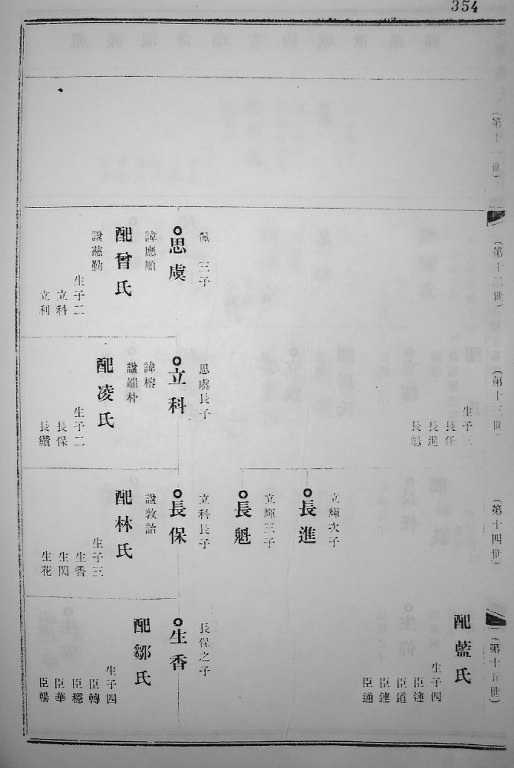 354
(第十一世)
(第十二世)
三子
思虞
諱應順
配曾氏
諡慈勤
生子二
立科
立利
(第十三世)
生子三
長任
長進
長魁
思虞長子
立科
諱榕
諡端朴
配凌氏
生子二
長保
長纘
(第十四世)
立輝次子
長進
立輝三子
長魁
立科長子
長保
諡敦誥
配林氏
生子三
生香
生閃
生花
(第十五世)
配藍氏
生子四
臣達
臣道
臣連
臣通
長保之子
生香
配鄒氏
生子四
臣轉
臣穩
臣華
臣暢